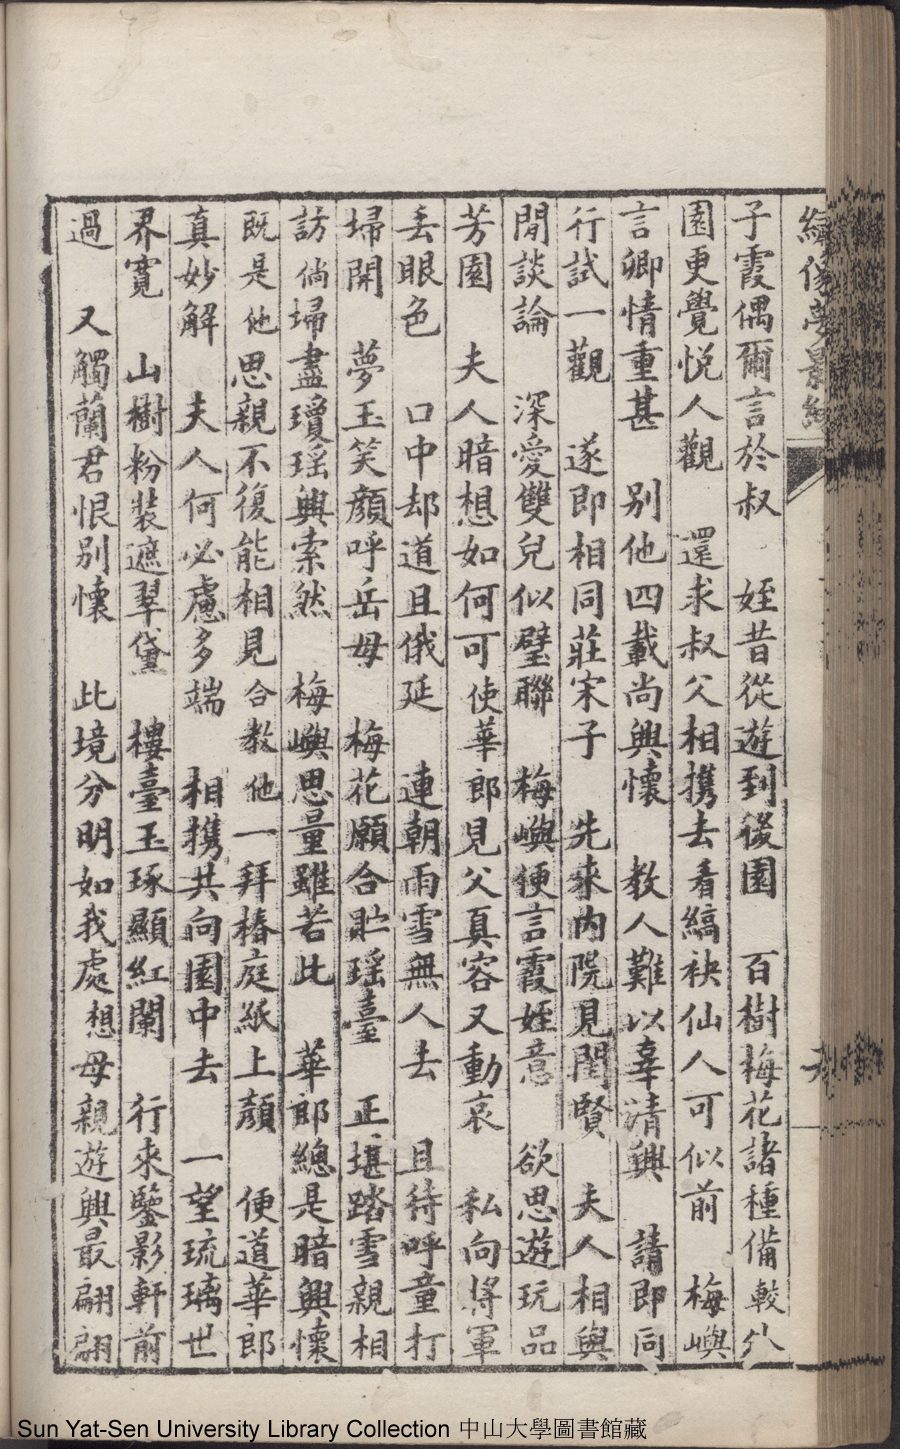 繡像夢影緣
子霞偶爾言於叔 姪昔從遊到後園 百樹梅花諸種備較外
園更覺悅人觀 還求叔父相携去看縞袂仙人可似前 梅嶼
言卿情重甚 别他四載尚興懷 教人難以辜清興 請即同
行試一觀 遂即相同莊宋子 先來內院見閨賢 夫人相與
閒談論 深愛雙兒似璧聯 梅嶼便言霞姪意 欲思遊玩品
芳園 夫人暗想如何可使華郎見父真容又動哀 私向將軍
丢眼色 口中却道且俄延 連朝雨雪無人去 且待呼童打
埽開 夢玉笑顏呼岳母 梅花願合貯瑶臺 正堪踏雪親相
訪倘埽盡瓊瑶興索然 梅嶼思量雖若此 華郎總是暗興懷
既是他思親不復能相見合教他一拜椿庭紙上顏 便道華郎
真妙解 夫人何必慮多端 相携共向園中去 一望琉璃世
界寬 山樹粉裝遮翠黛 樓臺玉琢顯紅闌 行來鑒影軒前
過 又觸蘭君恨别懷 此境分明如我處想母親遊興最翩翩
Sun Yat-Sen University Library Collection 中山大學圖書館藏